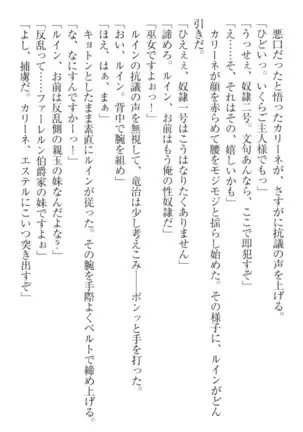 悪口だったと悟ったカリーネが、さすがに抗議の声を上げる。
「ひどいっ。いくらご主人様でもっ」
「うっせぇ、奴隷二号。文句あんなら、ここで即犯すぞ」
「え、ええ、それはその、嬉しいかも」
カリーネが顔を赤らめて腰をモジモジと揺らし始めた。その様子に、ルインがどん
引きだ。
「ひええぇ、奴隷一号はこうはなりたくありません」
「諦めろ。ルイン、お前はもう俺の性奴隷だ」
「巫女ですよぉっ！」
ルインの抗議の声を無視して、竜治は少し考えこみ――ポンッと手を打った。
「おい、ルイン。背中で腕を組め」
「ほえ、はぁ、まぁ」
キョトンとしたまま素直にルインが従った。その腕を手際よくベルトで締め上げる。
「な、なにすんですかーっ！」
「ルイン、お前は反乱側の親玉の妹なんだよな？」
「反乱って……ファーレルン伯爵家の妹ですよぉ」
「よし、捕虜だ。カリーネ、エステルにこいつ突き出すぞ」